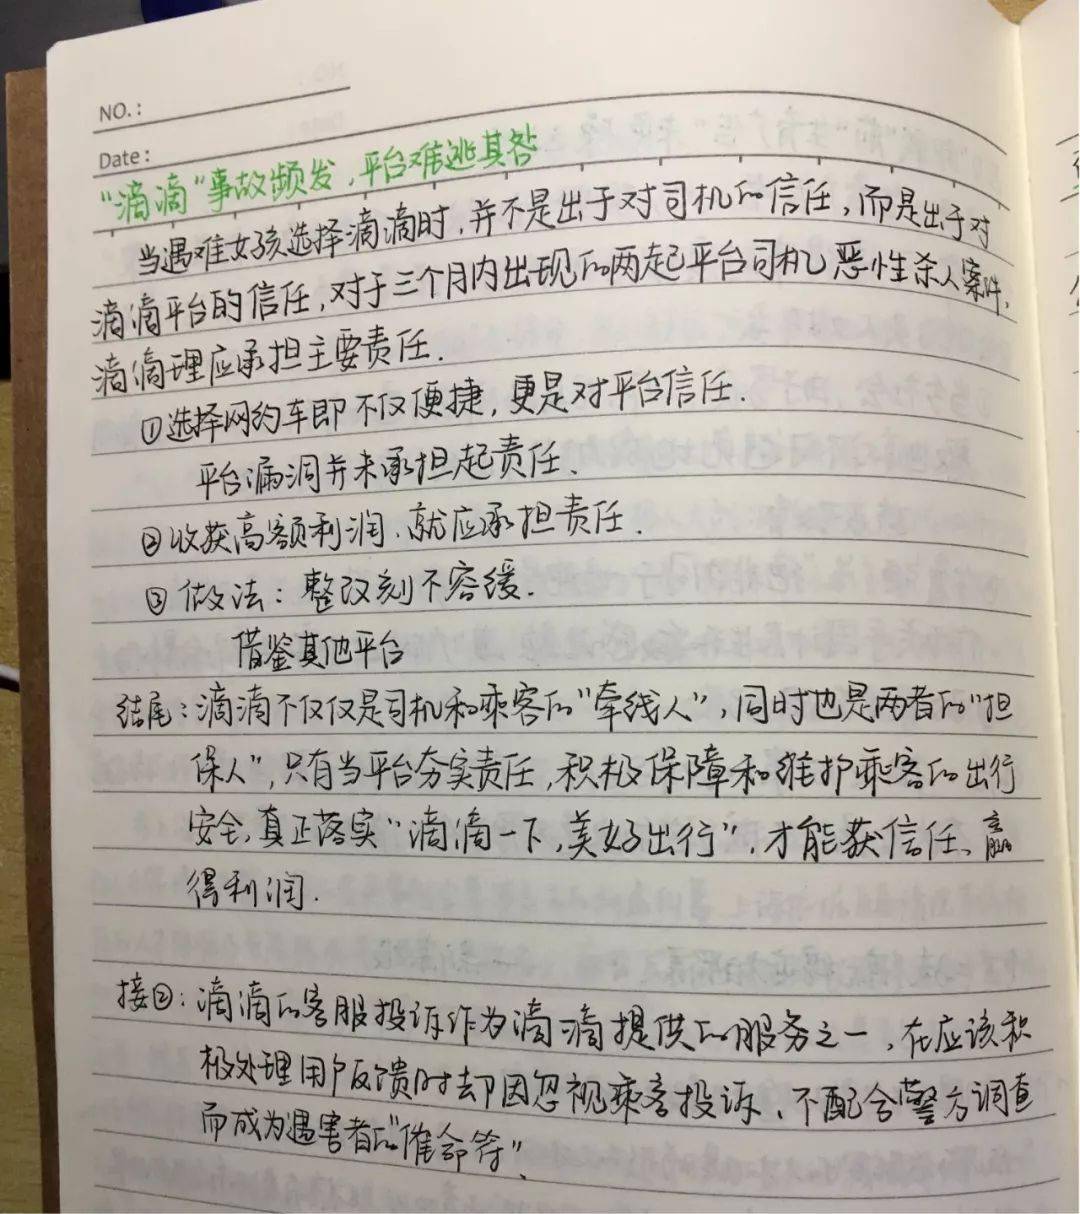 NO.:
Date:
“滴滴”事故频发，平台难逃其咎
当遇难女孩选择滴滴时，并不是出于对司机的信任，而是出于对
滴滴平台的信任，对于三个月内出现的两起平台司机恶性杀人案件，
滴滴理应承担主要责任．
①选择网约车即不仅便捷，更是对平台信任．
平台漏洞并未承担起责任．
②收获高额利润、就应承担责任．
③做法：整改刻不容缓．
借鉴其他平台
结尾：滴滴不仅仅是司机和乘客的“牵线人”，同时也是两者的“担
保人”，只有当平台夯实责任，积极保障和维护乘客的出行
安全，真正落实“滴滴一下，美好出行”，才能获信任、赢
得利润．
接②：滴滴的客服投诉作为滴滴提供的服务之一，在应该积
极处理用户反馈时却因忽视乘客投诉、不配合警方调查
而成为遇害者的“催命符”．